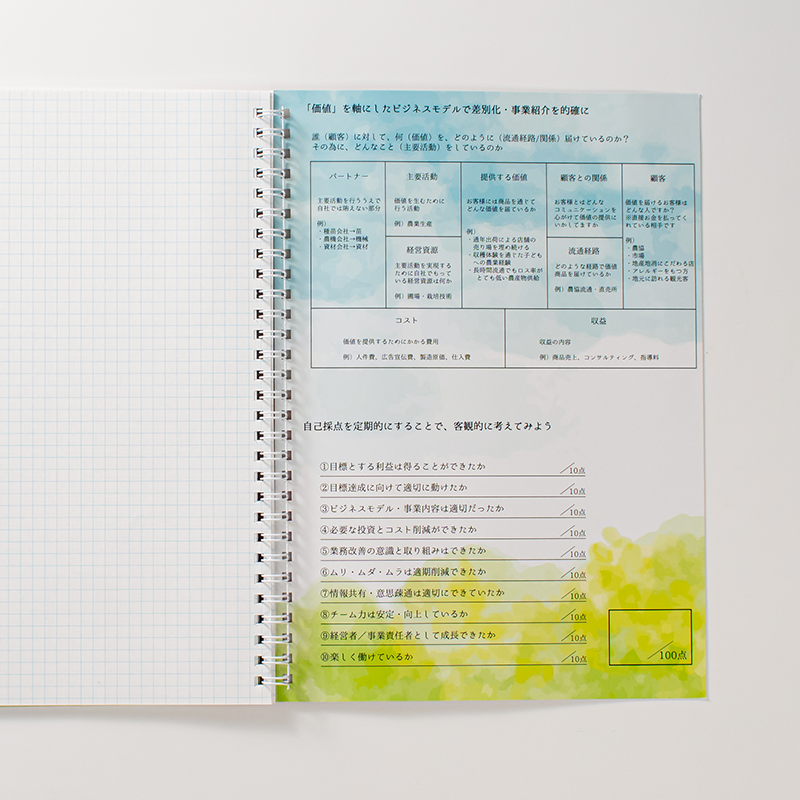 「価値」を軸にしたビジネスモデルで差別化・事業紹介を的確に
誰（顧客）に対して、何（価値）を、どのように（流通経路/関係）届けているのか？
その為に、どんなこと（主要活動）をしているのか
パートナー
主要活動を行ううえで
自社では賄えない部分
例）
・種苗会社→苗
・農機会社→機械
・資材会社→資材
主要活動
価値を生むために
行う活動
例）農業生産
経営資源
主要活動を実現する
ために自社でもって
いる経営資源は何か
例）圃場・栽培技術
提供する価値
お客様には商品を通じて
どんな価値を届ているか
例）
・通年出荷による店舗の
売り場を埋め続ける
・収穫体験を通じた子ども
への農業経験
・長時間流通でもロス率が
とても低い農産物供給
顧客との関係
お客様とはどんな
コミュニケーションを
心がけて価値の提供に
いかしてますか
流通経路
どのような経路で価値
商品を届けているか
例）農協流通・直売所
顧客
価値を届けるお客様は
どんな人ですか？
※直接お金を払ってく
れている相手です
例）
・農協
・市場
・地産地消にこだわる店
・アレルギーをもつ方
・地元に訪れる観光客
コスト
価値を提供するためにかかる費用
例）人件費、広告宣伝費、製造原価、仕入費
収益
収益の内容
例）商品売上、コンサルティング、指導料
自己採点を定期的にすることで、客観的に考えてみよう
①目標とする利益は得ることができたか ／10点
②目標達成に向けて適切に動けたか ／10点
③ビジネスモデル・事業内容は適切だったか ／10点
④必要な投資とコスト削減ができたか ／10点
⑤業務改善の意識と取り組みはできたか ／10点
⑥ムリ・ムダ・ムラは適期削減できたか ／10点
⑦情報共有・意思疎通は適切にできていたか ／10点
⑧チーム力は安定・向上しているか ／10点
⑨経営者／事業責任者として成長できたか ／10点
⑩楽しく働けているか ／10点
／100点